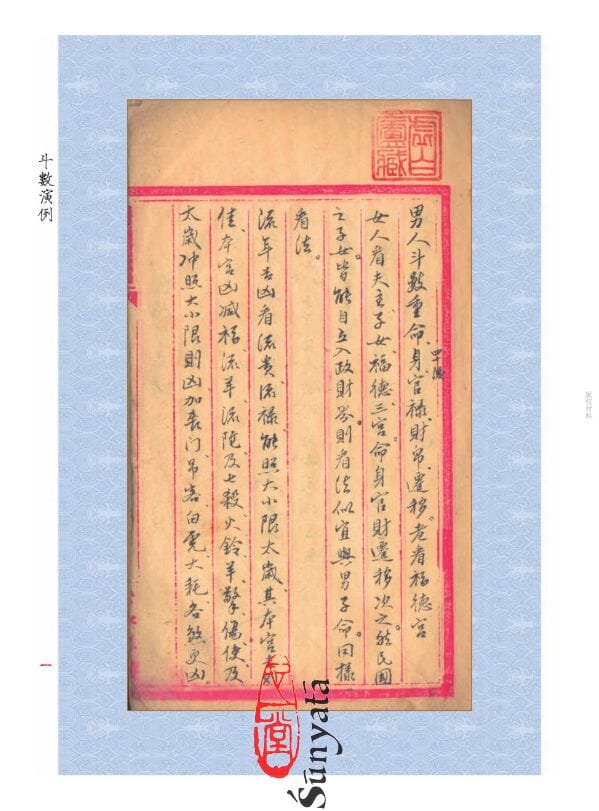 版权材料
虛白廬藏
男人斗數重命、身、官祿、財帛、遷移。老看福德宮
女人看夫主、子女、福德三宮。命身官財遷移次之。然民國
之子女皆能自立入政財界。則看法似宜與男子命。同樣
看法。
流年吉凶看流貴流祿。能照大小限太歲。其本宮
佳、本宮凶減福、流年流陀及七殺、火鈴、羊擎、傷使及
太歲冲照大小限則凶加喪门、吊客、白虎大耗各煞更凶。
斗數演例
一
心一堂
Śūnyatā